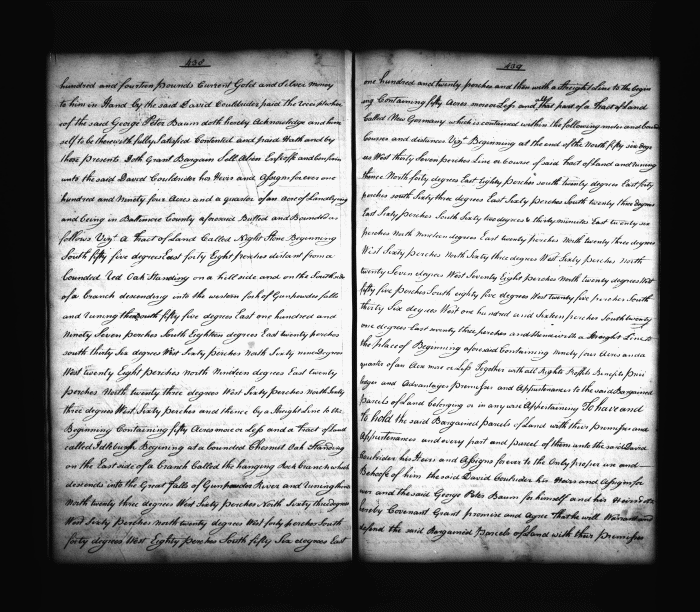 438
hundred and fourteen pounds Current Gold and Silver money
to him in Hand by the said David Couldrider paid the receipt where
eof the said George Peter Baum doth hereby Acknowledge and him
self to be therewith fully Satisfied Contented and paid Hath and by
these Presents Doth Grant Bargain Sell Alien Enfeoff and Confirm
unto the said David Couldrider his Heirs and Assigns forever one
hundred and Ninety four Acres and a quarter of an Acre of Land lying
and being in Baltimore County aforesaid Butted and Bounded as
follows Vizt. A Tract of Land Called Beginning
South fifty five degrees East forty Eight perches distant from a
bounded Red Oak Standing on a hill side and on the South side
of a branch descending into the western fork of Gunpowder falls
and runing thence South fifty five degrees East one hundred and
Ninety Seven perches South Eighteen degrees East twenty perches
South thirty Six degrees West Sixty perches North Sixty nine Degrees
West twenty Eight perches North Nineteen degrees East twenty
perches North twenty three degrees West Sixty perches North Sixty
three degrees West Sixty perches and thence by a Straight Line to the
Beginning Containing fifty Acres more or Less and a tract of land
called Begining at a bounded Chesnut Oak Standing
on the East side of a branch Called the hanging Rock branch which
descends into the Great falls of Gunpowder River and runing thence
North twenty three degrees West Sixty perches North Sixty three degrees
West Sixty Perches North twenty degrees West forty perches South
forty degrees West Eighty perches South fifty Six degrees East
439
one hundred and twenty perches and then with a Streight Line to the begin
ing Containing fifty Acres more or Less and all that part of a Tract of Land
Called New Germany which is contained within the following metes and bounds
Courses and distances Vizt. Beginning at the end of the North fifty six degre
es West thirty Seven perches Line or Course of said Tract of Land and runing
thence North forty degrees East Eighty perches South twenty degrees East forty
perches South Sixty three degrees East Sixty perches South twenty three degrees
East Sixty perches South Sixty two degrees & thirty minutes East twenty six
perches North Nineteen degrees East twenty perches North twenty three degrees
West Sixty perches North thirty three degrees West Sixty perches North
twenty Seven degrees West Seventy Eight perches North twenty degrees West
fifty five perches South eighty five degrees West twenty five perches South
thirty Six degrees West one hundred and Sixteen perches South twenty
one degrees East twenty three perches and thence with a Straight Line to
the place of Beginning aforesaid Containing Ninety four Acres and a
quarter of an Acre more or Less Together with all Rights Profits Benefits Privi
ledges and Advantages Premises and Appurtenances to the said Bargained
parcels of Land belonging or in any wise Appertaining To have and
to hold the said Bargained Parcels of Land with their premises and
Appurtenances and every part and parcel of them unto the said David
Coulrider his Heirs and Assigns forever to the Only proper use and
Behoofe of him the said David Coulrider his Heirs and Assigns for
ever and the said George Peter Baum for himself and his Heirs doth
hereby Covenant Grant promise and agree that he will Warrant and
defend the said Bargained Parcels of Land with their Premises